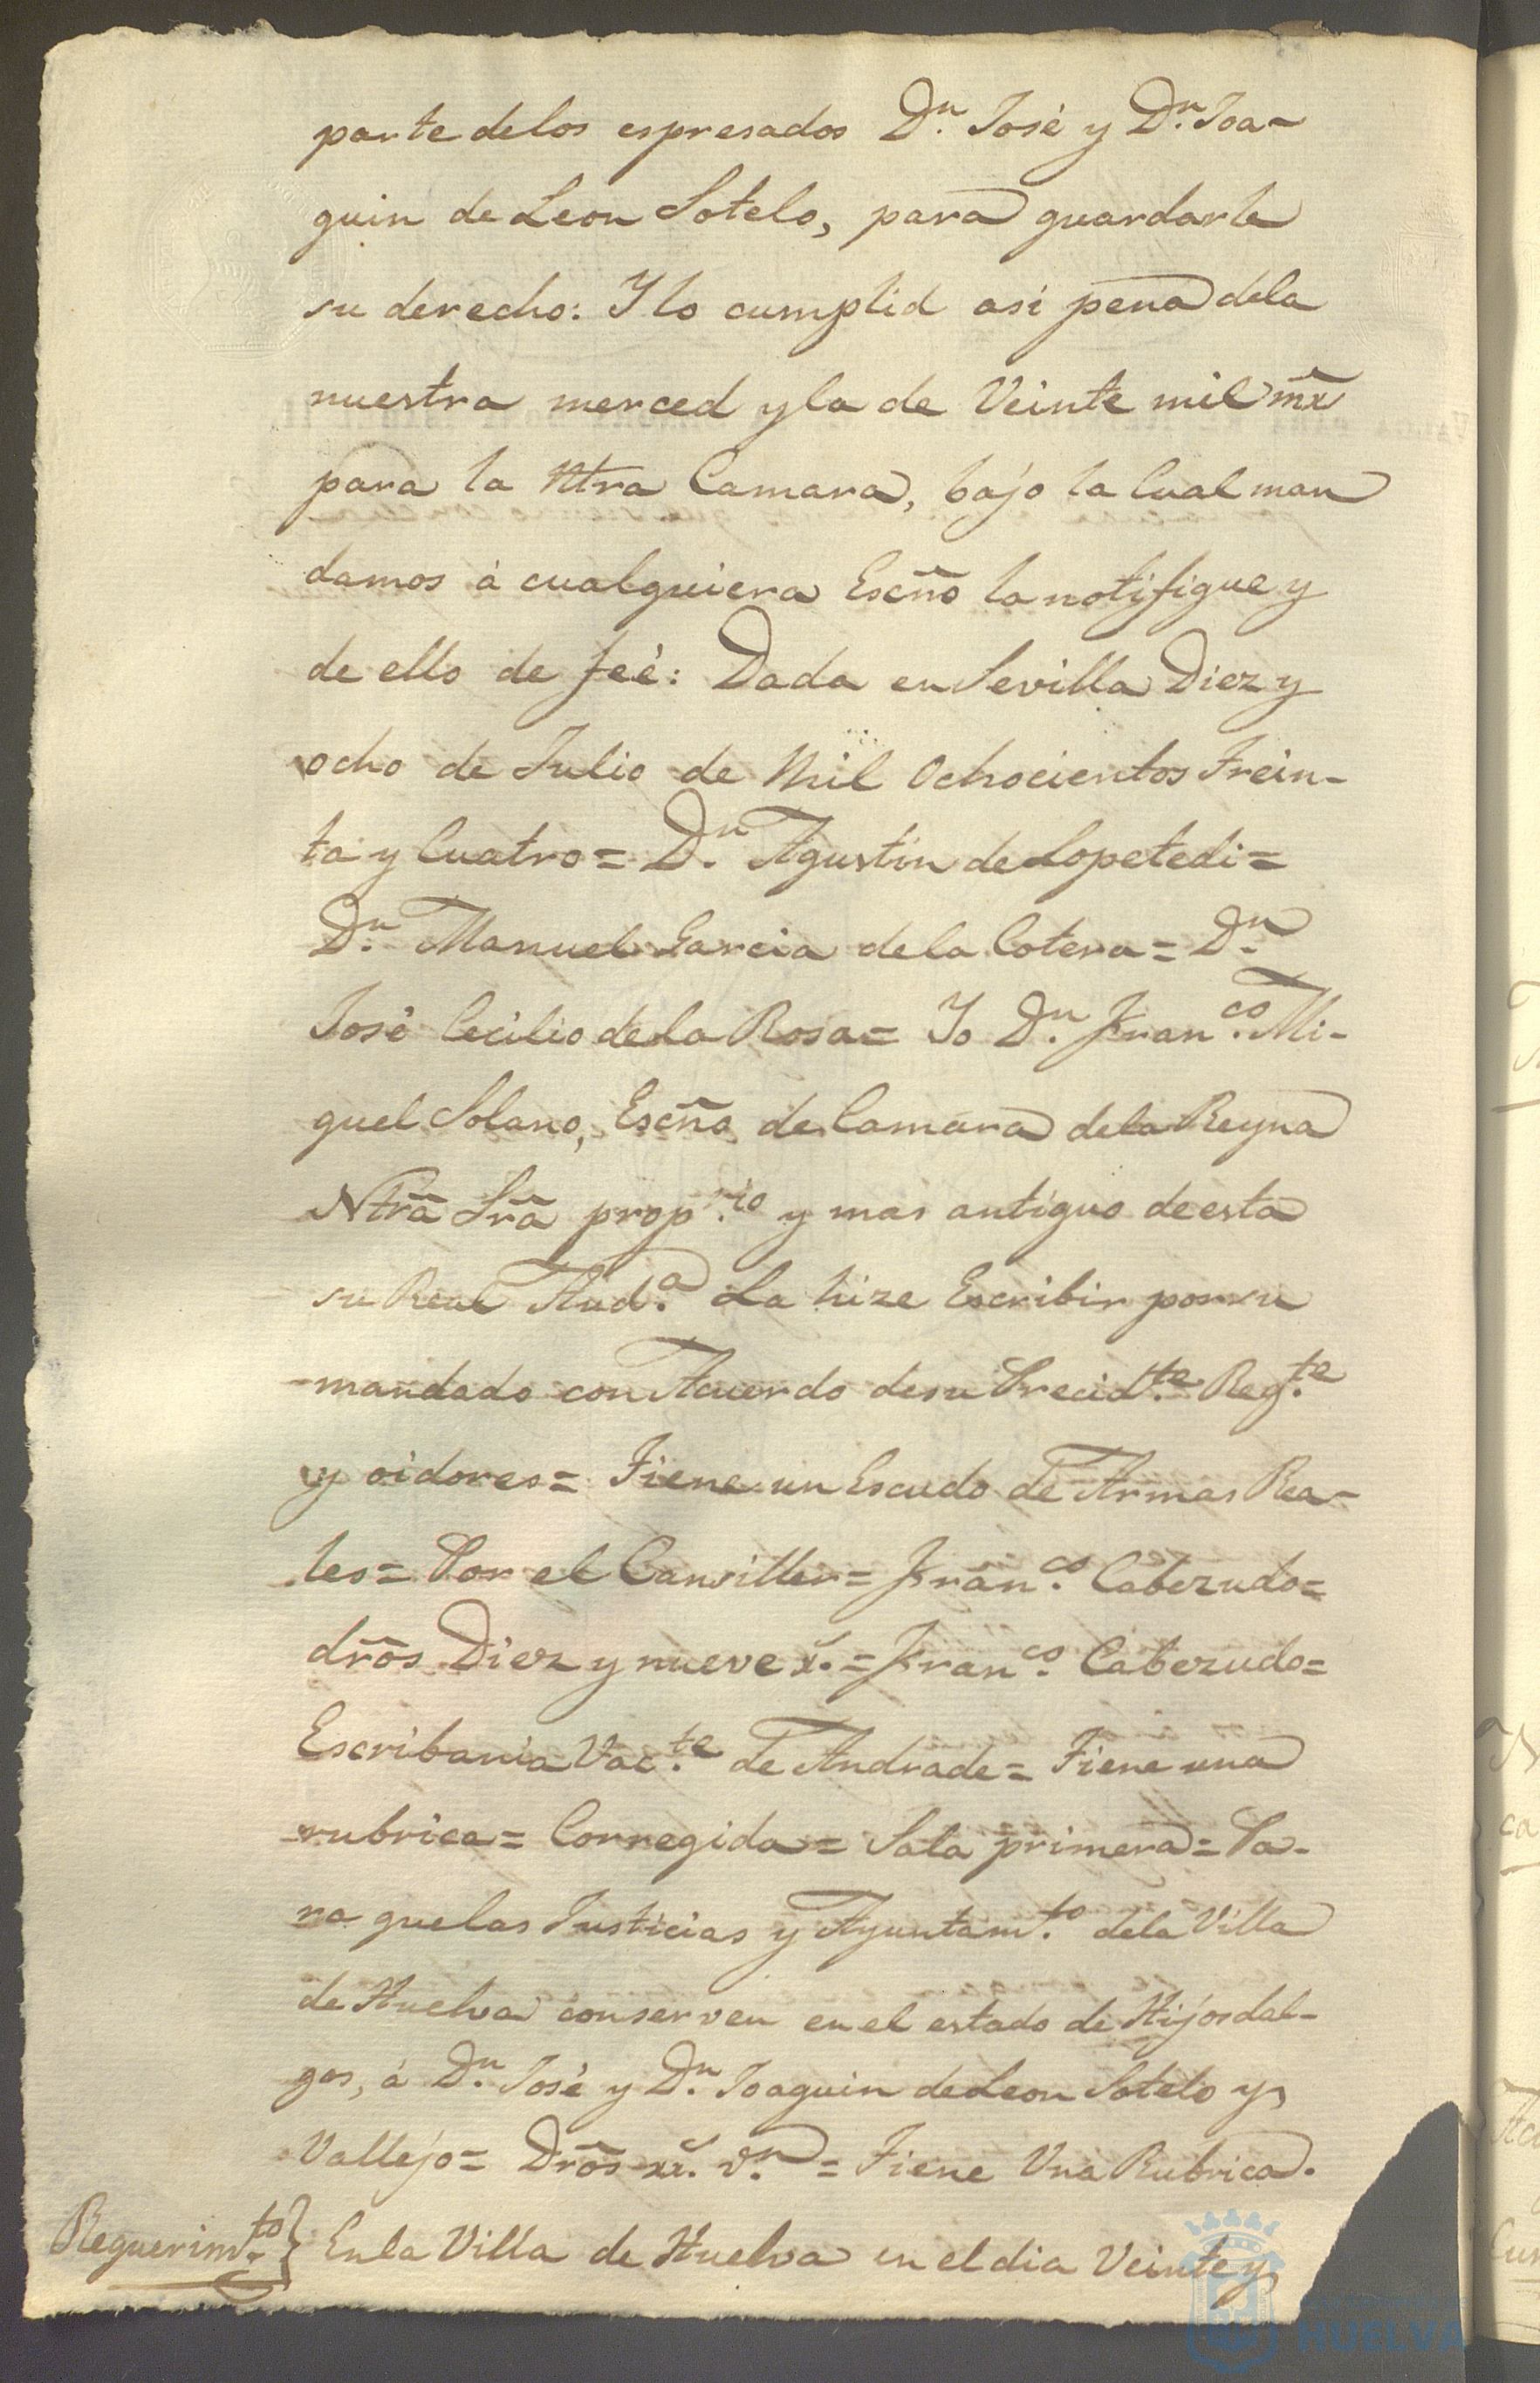 parte delos espresados D.n José y D.n Joa-
quin de Leon Sotelo, para guardarle
su derecho: Y lo cumplid asi pena dela
nuestra merced y la de Veinte mil mrs̃
para la Ntra Camara, bajo la Cual man
damos á cualquiera Escñ̃o la notifique y
de ello de feé: Dada en Sevilla Diez y
ocho de Julio de Mil Ochocientos Trein-
ta y Cuatro = D.n Agustin de Lopetedi =
D.n Manuel Garcia dela Cotera = D.n
José Cecilio dela Rosa = Yo D.n Fran.co Mi-
guel Solano, Escñ̃o de Camara dela Reyna
Ntrã Srã prop.rio y mas antiguo de esta
su Real Aud.a La hize Escribir por su
mandado con Acuerdo de su Precid.te Reg.te
y oidores = Tiene un Escudo de Armas Rea-
les = Por el Canciller = Fran.co Cabezudo =
drõs Diez y nueve r.s = Fran.co Cabezudo =
Escribania Vac.te de Andrade = Tiene una
rubrica = Corregida = Sala primera = Pa-
ra que las Justicias y Ayuntam.to dela Villa
de Huelva conserven en el estado de Hijosdal-
gos, á D.n José y D.n Joaquin de Leon Sotelo y
Vallejo = Drõs xx. v.n = Tiene Una Rubrica.
Requerim.to } En la Villa de Huelva en el dia Veinte y
HUELVA